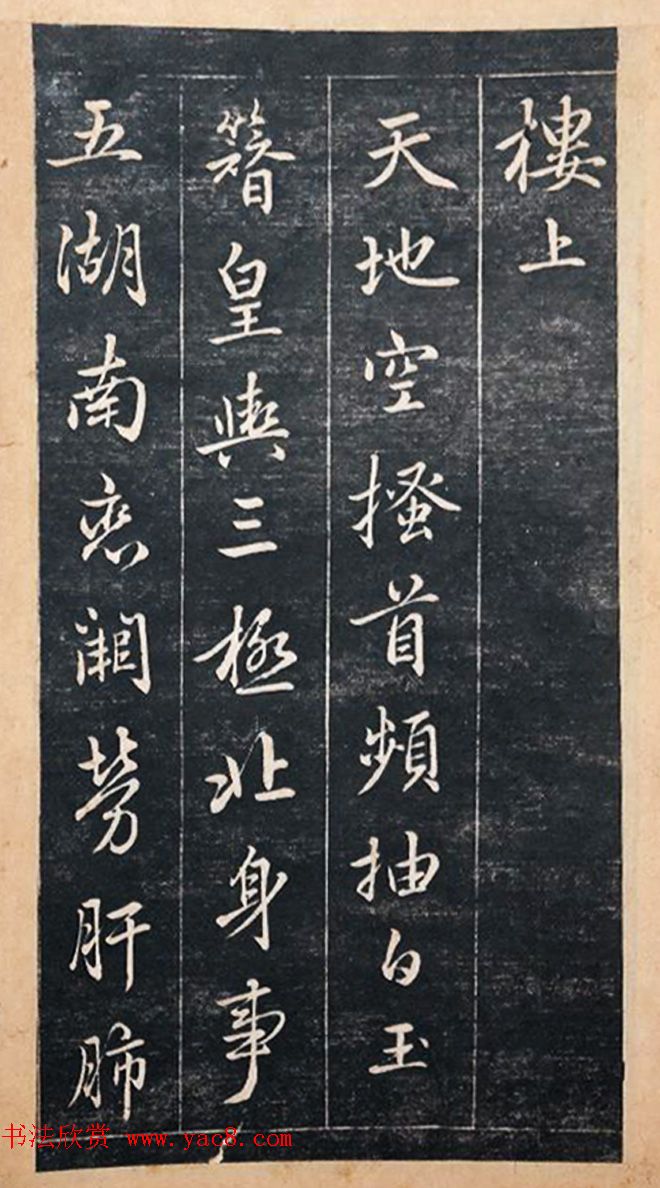 樓上
天地空搔首頻抽白玉
簪皇輿三極北身事
五湖南恋闕勞肝肺
书法欣赏 www.yac8.com